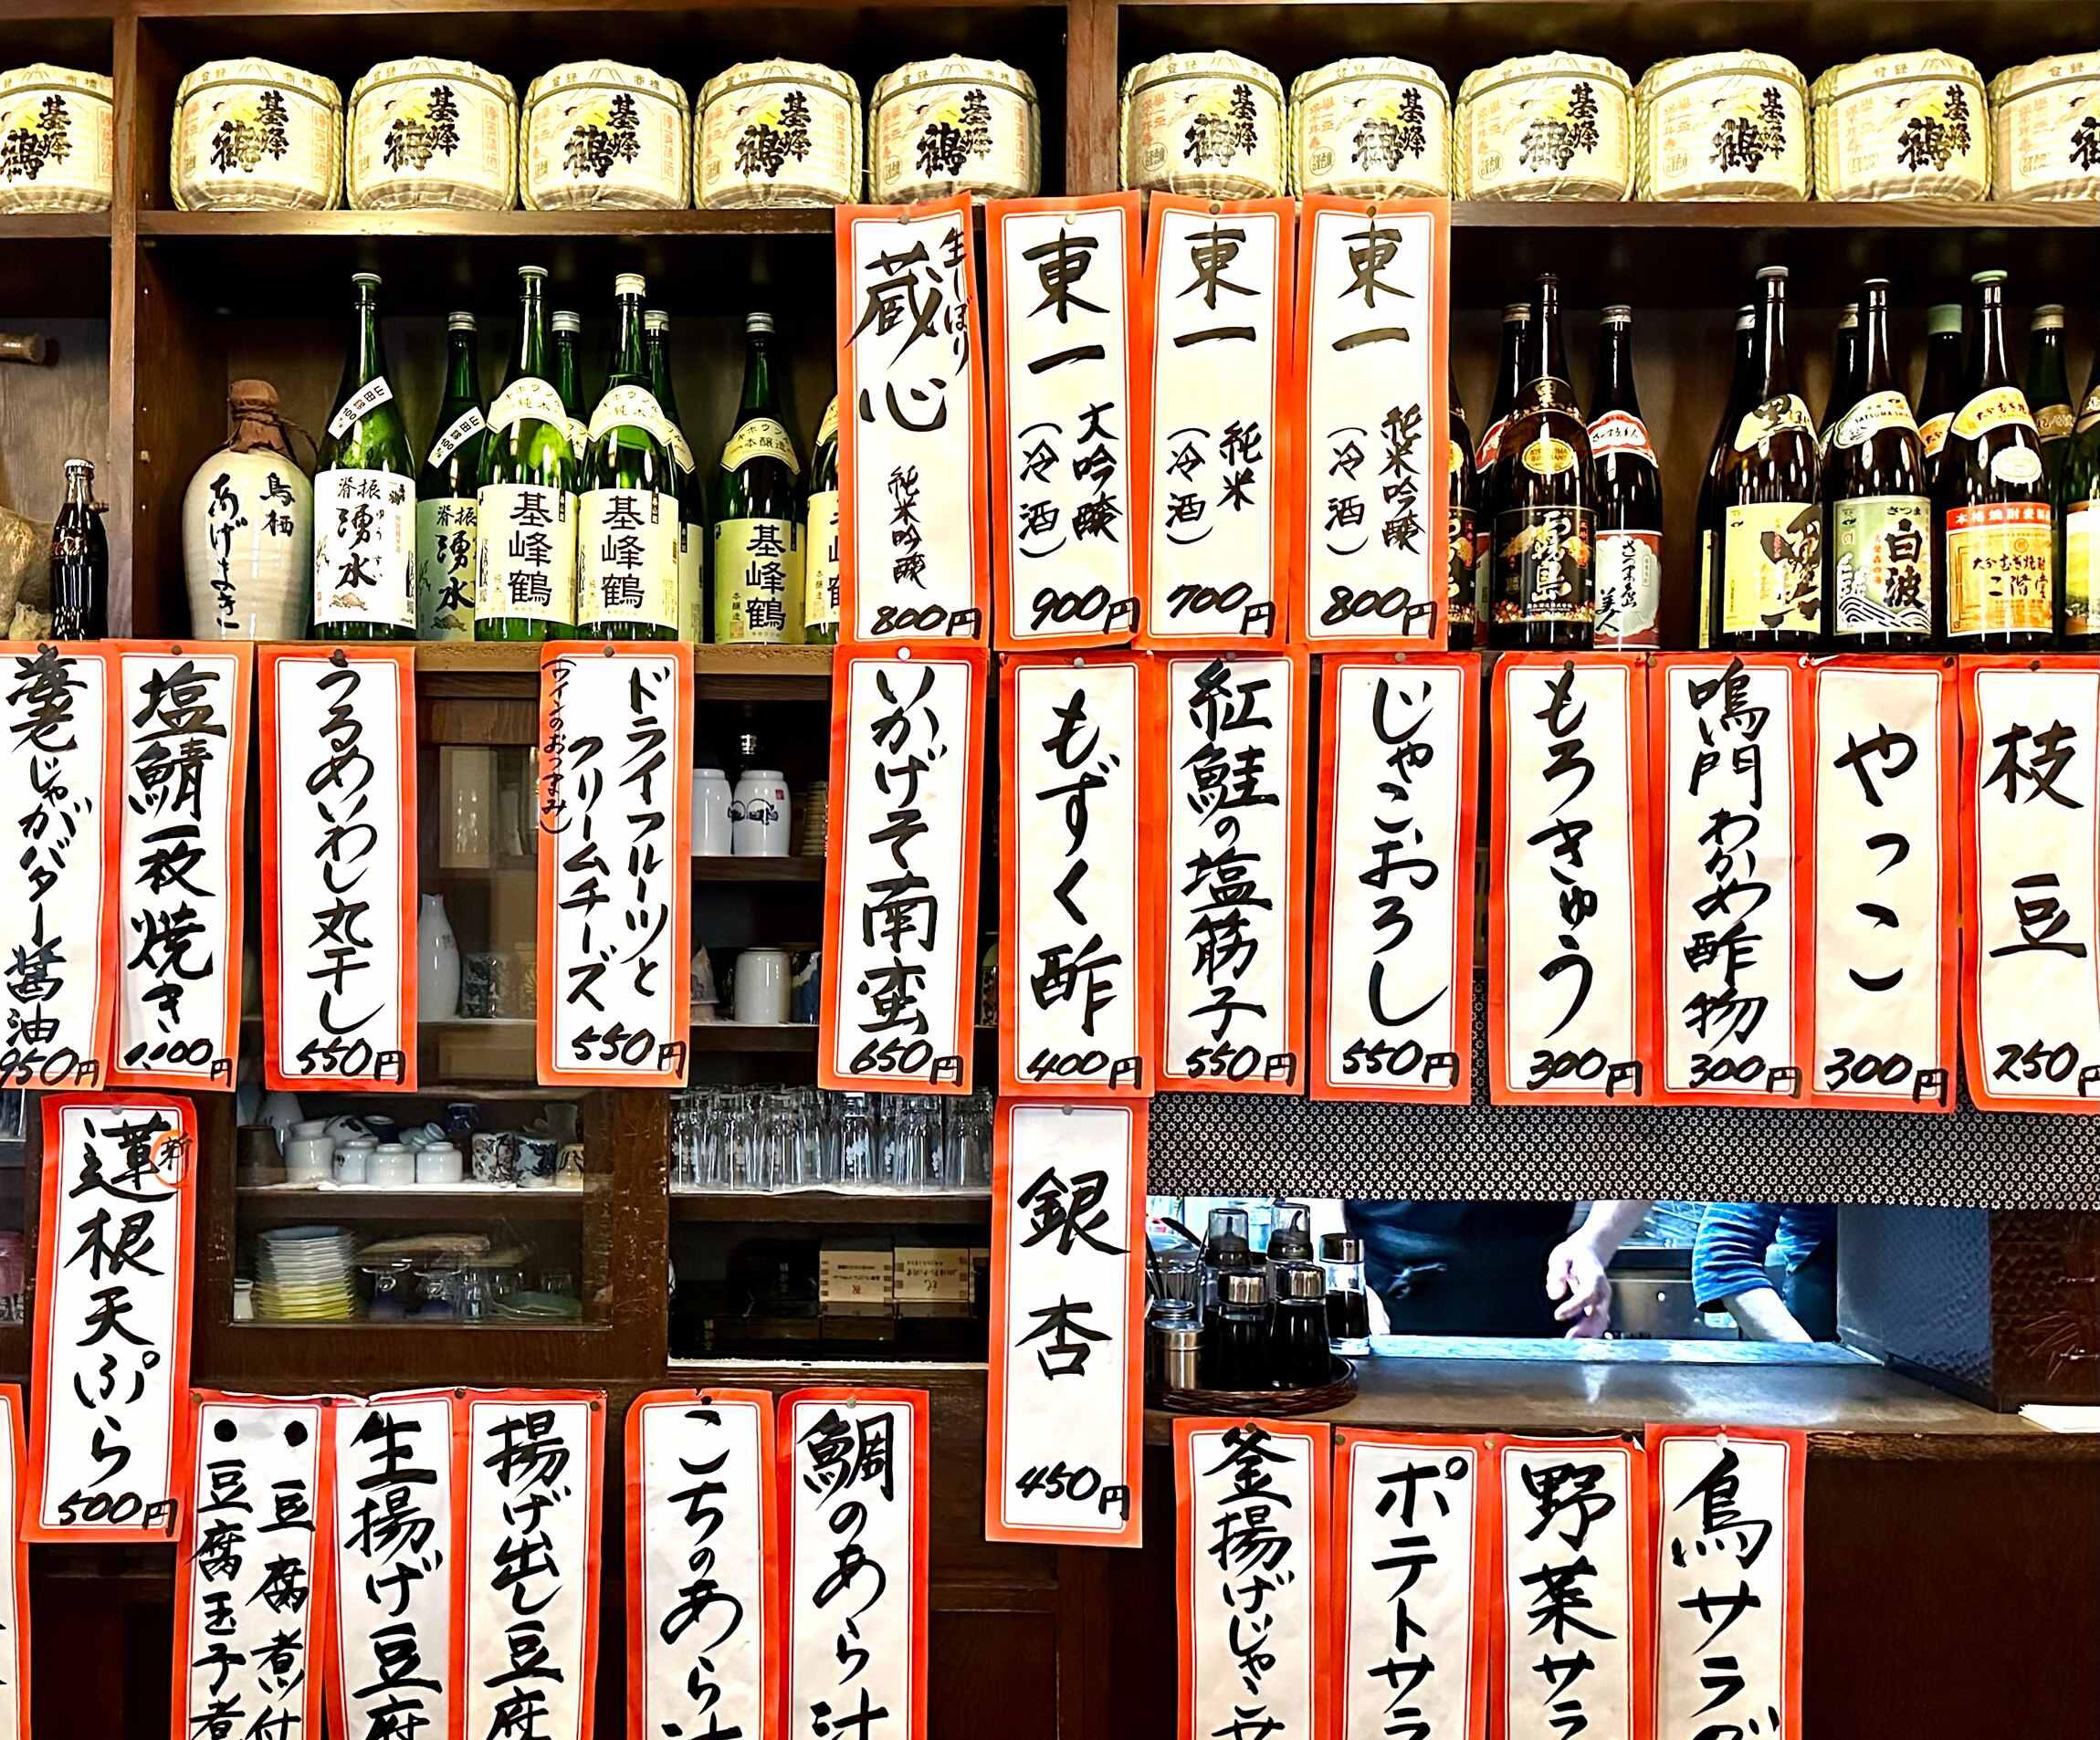 基峰鶴
基峰鶴
基峰鶴
基峰鶴
基峰鶴
基峰鶴
基峰鶴
基峰鶴
基峰鶴
基峰鶴
基峰鶴
鳥栖
あげまき
山田錦100%
脊振
湧水
ゆうすい
山田錦100%
脊振
湧水
基峰鶴
基峰鶴
基峰鶴
本醸造
生しぼり
蔵心
純米吟醸
800円
東一
大吟醸
(冷酒)
900円
東一
純米
(冷酒)
700円
東一
純米吟醸
(冷酒)
800円
霧島
さつま
美人
さつま
白波
大分むぎ焼酎
二階堂
枝豆
250円
やっこ
300円
鳴門わかめ酢物
300円
もろきゅう
300円
じゃこおろし
550円
紅鮭の塩筋子
550円
もずく酢
400円
いかげそ南蛮
650円
ドライフルーツと
クリームチーズ
(ワインのおつまみ)
550円
うるめいわし丸干し
550円
塩鯖一枚焼き
1,100円
じゃがバター醤油
950円
銀杏
450円
新
蓮根天ぷら
500円
鳥サラダ
野菜サラ
ポテトサラ
釜揚げじゃこサ
鯛のあら汁
こちのあら汁
揚げ出し豆腐
生揚げ豆腐
●豆腐煮付
●豆腐玉子煮